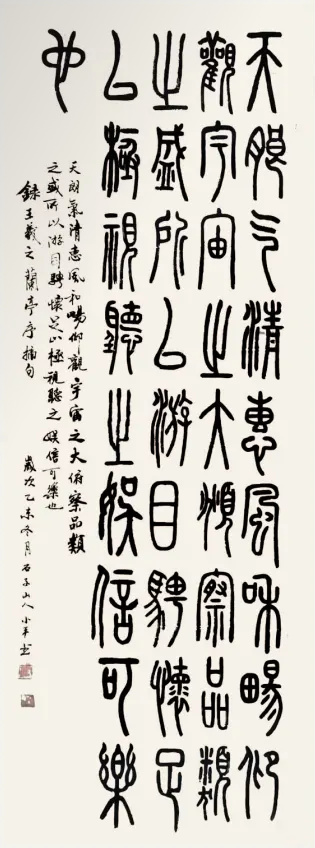 天朗气清惠風和暢仰
觀宇宙之大頫察品類
之盛所以游目騁懷足
以極視聽之娛信可樂
也
天朗氣清惠風和暢仰觀宇宙之大俯察品類
之盛所以游目騁懷足以極視聽之娛信可樂也
錄王羲之蘭亭序摘句
歲次乙未冬月石子山人小平書